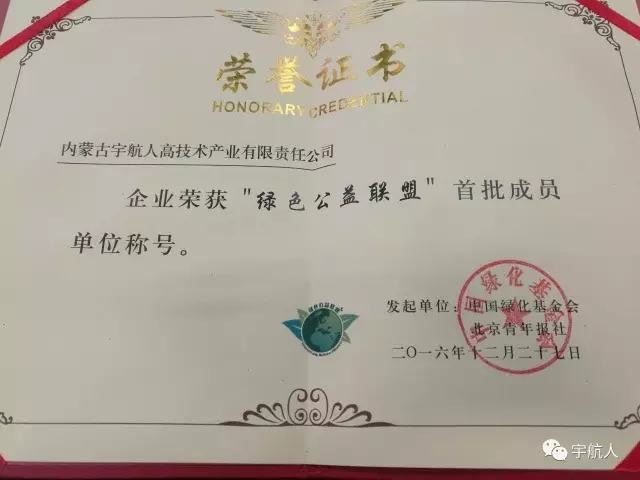 荣誉证书
HONORARY CREDENTIAL
内蒙古宇航人高技术产业有限责任公司
企业荣获"绿色公益联盟"首批成员
单位称号。
绿色公益联盟
发起单位：中国绿化基金会
北京青年报社
二〇一六年十二月二十七日
中国绿化基金会
宇航人